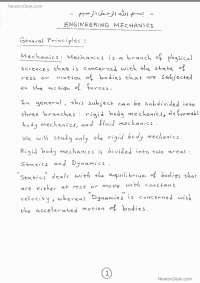 NewtonDesk.com
- بسم الله الرحمن الرحيم -
ENGINEERING MECHANICS
General Principles:
Mechanics: Mechanics is a branch of physical
sciences that is concerned with the state of
rest or motion of bodies that are subjected
to the action of forces.
In general, this subject can be subdivided into
three branches: rigid body mechanics, deformable
body mechanics, and fluid mechanics.
We will study only the rigid body mechanics.
Rigid body mechanics is divided into two areas:
Statics and Dynamics.
"Statics" deals with the equilibrium of bodies that
are either at rest or move with constant
velocity, whereas "Dynamics" is concerned with
the accelerated motion of bodies.
1
NewtonDesk.com